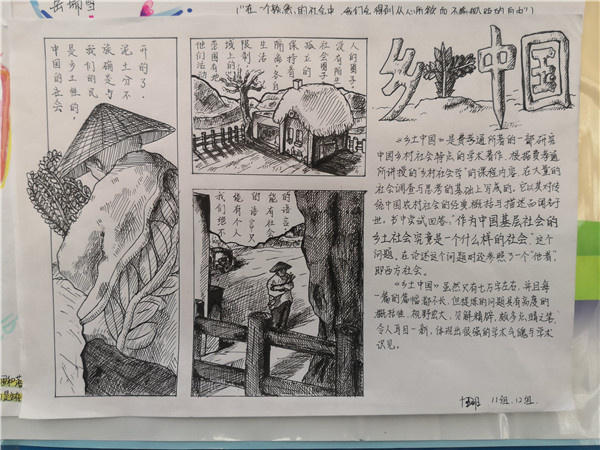 ("在一个熟悉的社会中，我们会得到从心所欲而不逾规矩的自由")
乡土中国
中国的社会
是乡土性的，
我们的民
族确是与
泥土分不
开的了。
他们活动
范围有地
域上的
限制
生活
隔离，各自
保持着
孤立的
社会圈子
没有陌生
人的圈子。
我们想不
能有个人
的语言，只
能有社会
的语言
《乡土中国》是费孝通所著的一部研究
中国乡村社会特点的学术著作。根据费孝通
所讲授的"乡村社会学"的课程内容，在大量的
社会调查与思考的基础上写成的。它以其对传
统中国农村社会的经典概括与描述而闻名于
世。书中尝试回答，"作为中国基层社会的
乡土社会究竟是一个什么样的社会"这个
问题。在论述这个问题时还参照了一个"他者"，
即西方社会。
《乡土中国》虽然只有七万字左右，并且每
一篇的篇幅都不长，但提炼的问题具有高度的
概括性，视野宏大，见解精辟，颇多点睛之笔，
令人耳目一新，体现出很强的学术气魄与学术
识见。
11组.12组.